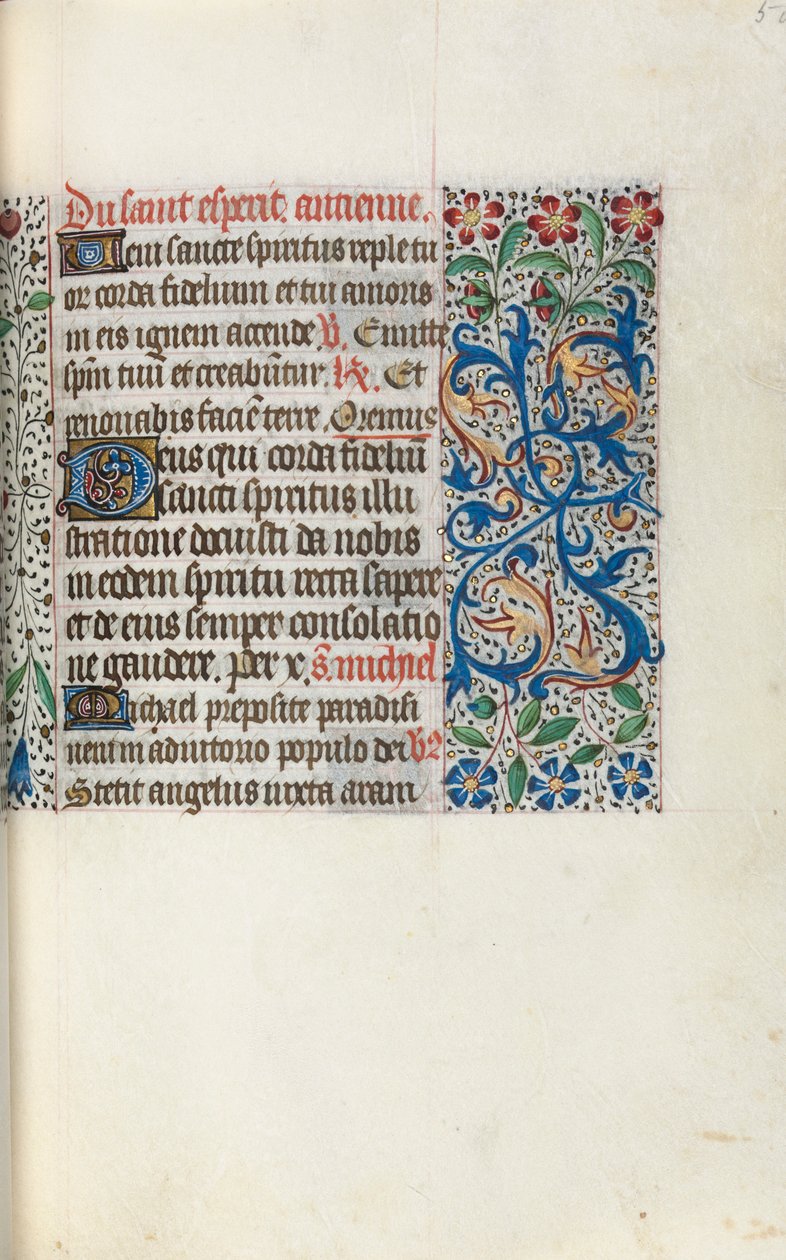 5
Du saint esperit. antienne.
Ueni sancte spiritus reple tu
or corda fidelium et tui amoris
in eis ignem accende. V. Emitte
spm̄ tuū et creabūtur. R. Et
renouabis faciē terre. Oremus
Deus qui corda fidelium̄
sancti spiritus illu
stratione docuisti da nobis
in eodem spiritu recta sapere
et de eius semper consolatio
ne gaudere. Per x. S. michiel
Michael preposite paradisi
ueni in adiutorio populo dei V
Stetit angelus iuxta aram